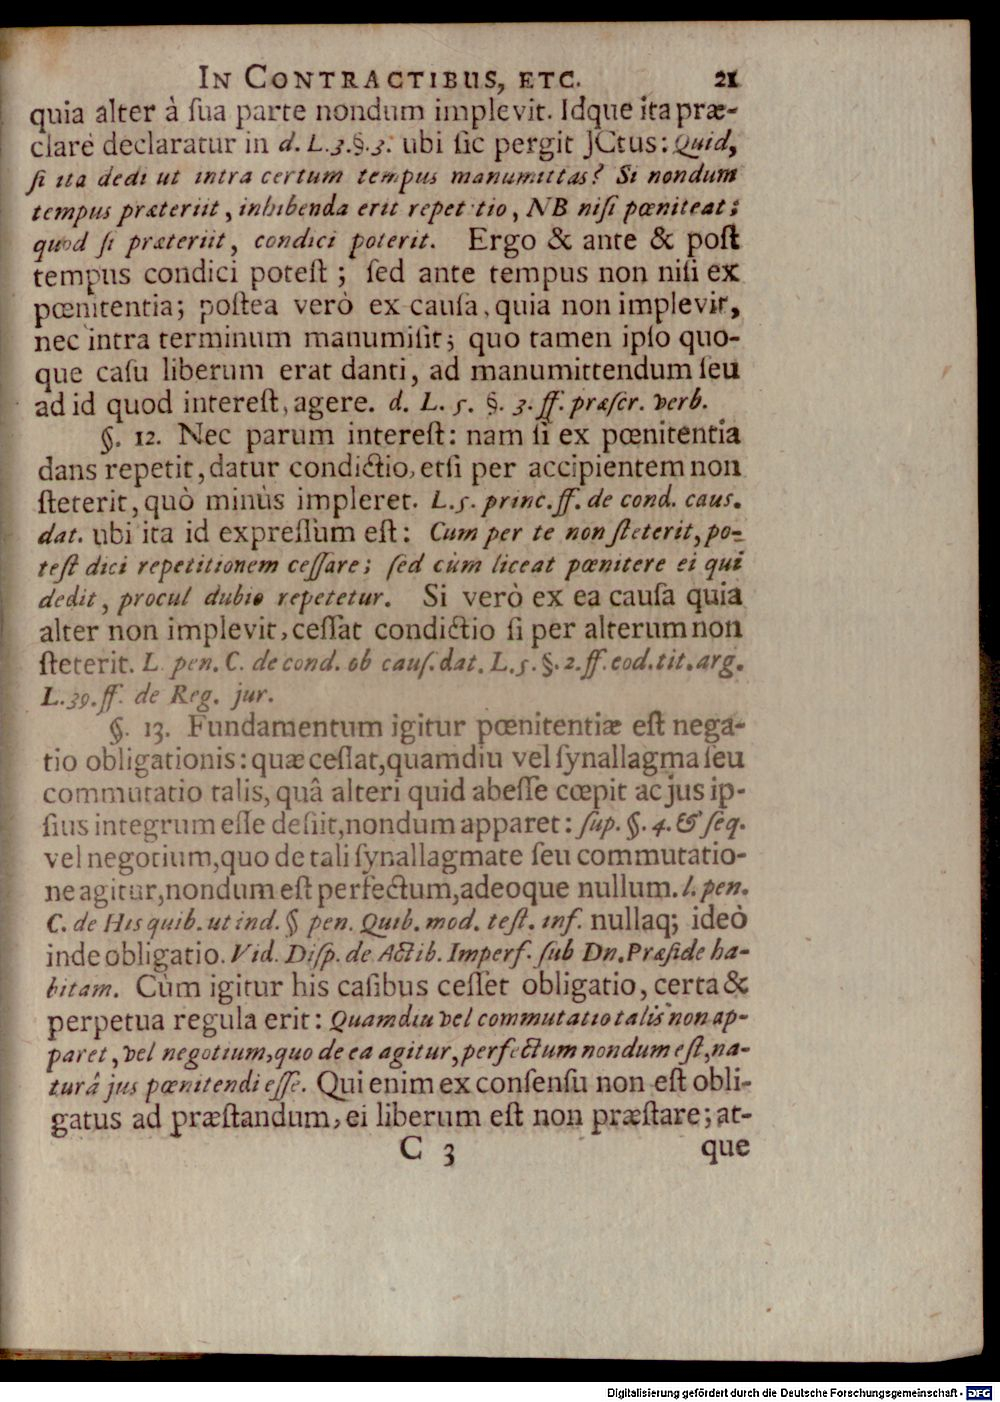 IN CONTRACTIBUS, ETC. 21
quia alter à ſua parte nondum implevit. Idque ita præ-
clarè declaratur in d. L.3.§.3. ubi ſic pergit JCtus: Quid,
ſi ita dedi ut intra certum tempus manumittas? Si nondum
tempus præteriit, inhibenda erit repetitio, NB niſi pœniteat;
quod ſi præteriit, condici poterit. Ergo & ante & poſt
tempus condici poteſt; ſed ante tempus non niſi ex
pœnitentia; poſtea verò ex cauſa, quia non implevit,
nec intra terminum manumiſit; quo tamen ipſo quo-
que caſu liberum erat danti, ad manumittendum ſeu
ad id quod intereſt, agere. d. L. 5. §. 3. ff. præſcr. verb.
§. 12. Nec parum intereſt: nam ſi ex pœnitentia
dans repetit, datur condictio, etſi per accipientem non
ſteterit, quò minùs impleret. L.5. princ. ff. de cond. caus.
dat. ubi ita id expreſſum eſt: Cum per te non ſteterit, po-
teſt dici repetitionem ceſſare; ſed cùm liceat pœnitere ei qui
dedit, procul dubio repetetur. Si verò ex ea cauſa quia
alter non implevit, ceſſat condictio ſi per alterum non
ſteterit. L. pen. C. de cond. ob cauſ. dat. L.5.§.2.ff. eod. tit. arg.
L.39.ff. de Reg. jur.
§. 13. Fundamentum igitur pœnitentiæ eſt nega-
tio obligationis: quæ ceſſat, quamdiu vel ſynallagma ſeu
commutatio talis, quâ alteri quid abeſſe cœpit ac jus ip-
ſius integrum eſſe deſiit, nondum apparet: ſup. §. 4. & ſeq.
vel negotium, quo de tali ſynallagmate ſeu commutatio-
ne agitur, nondum eſt perfectum, adeoque nullum. l. pen.
C. de His quib. ut ind. § pen. Quib. mod. teſt. inf. nullaq; ideò
inde obligatio. Vid. Diſp. de Actib. Imperf. ſub Dn. Præſide ha-
bitam. Cùm igitur his caſibus ceſſet obligatio, certa &
perpetua regula erit: Quamdiu vel commutatio talis non ap-
paret, vel negotium, quo de ea agitur, perfectum nondum eſt, na-
turâ jus pœnitendi eſſe. Qui enim ex conſenſu non eſt obli-
gatus ad præſtandum, ei liberum eſt non præſtare; at-
C 3 que
Digitalisierung gefördert durch die Deutsche Forschungsgemeinschaft - DFG